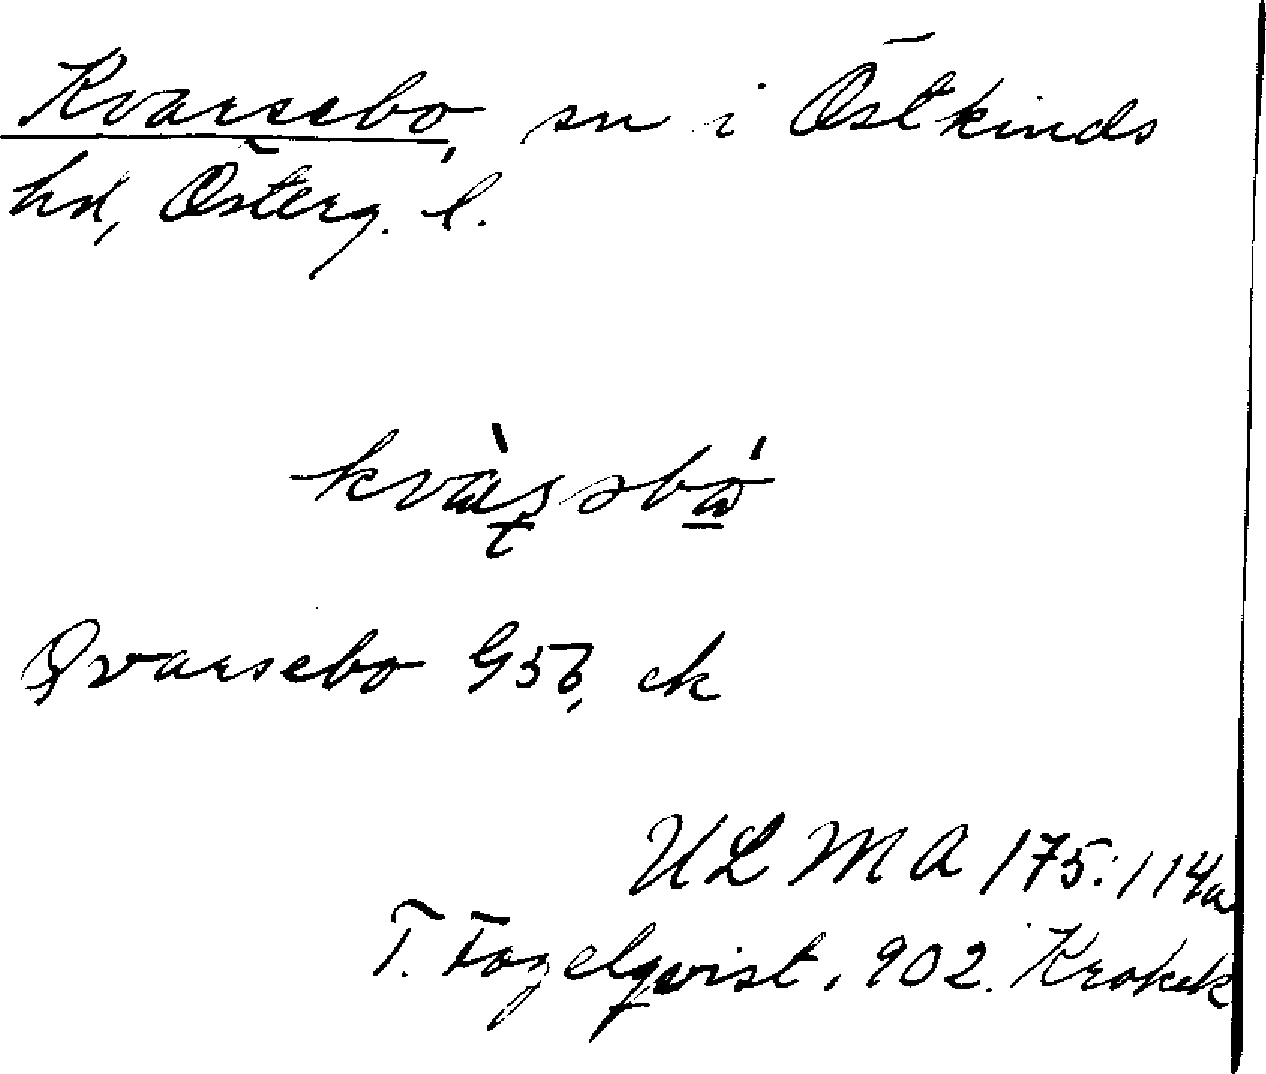 Kvarsebo, sn i Östkinds
hd, Österg. l.
Qvarsebo G56, ek
ULMA 175:114a
T. Fogelqvist, 902. Krokek